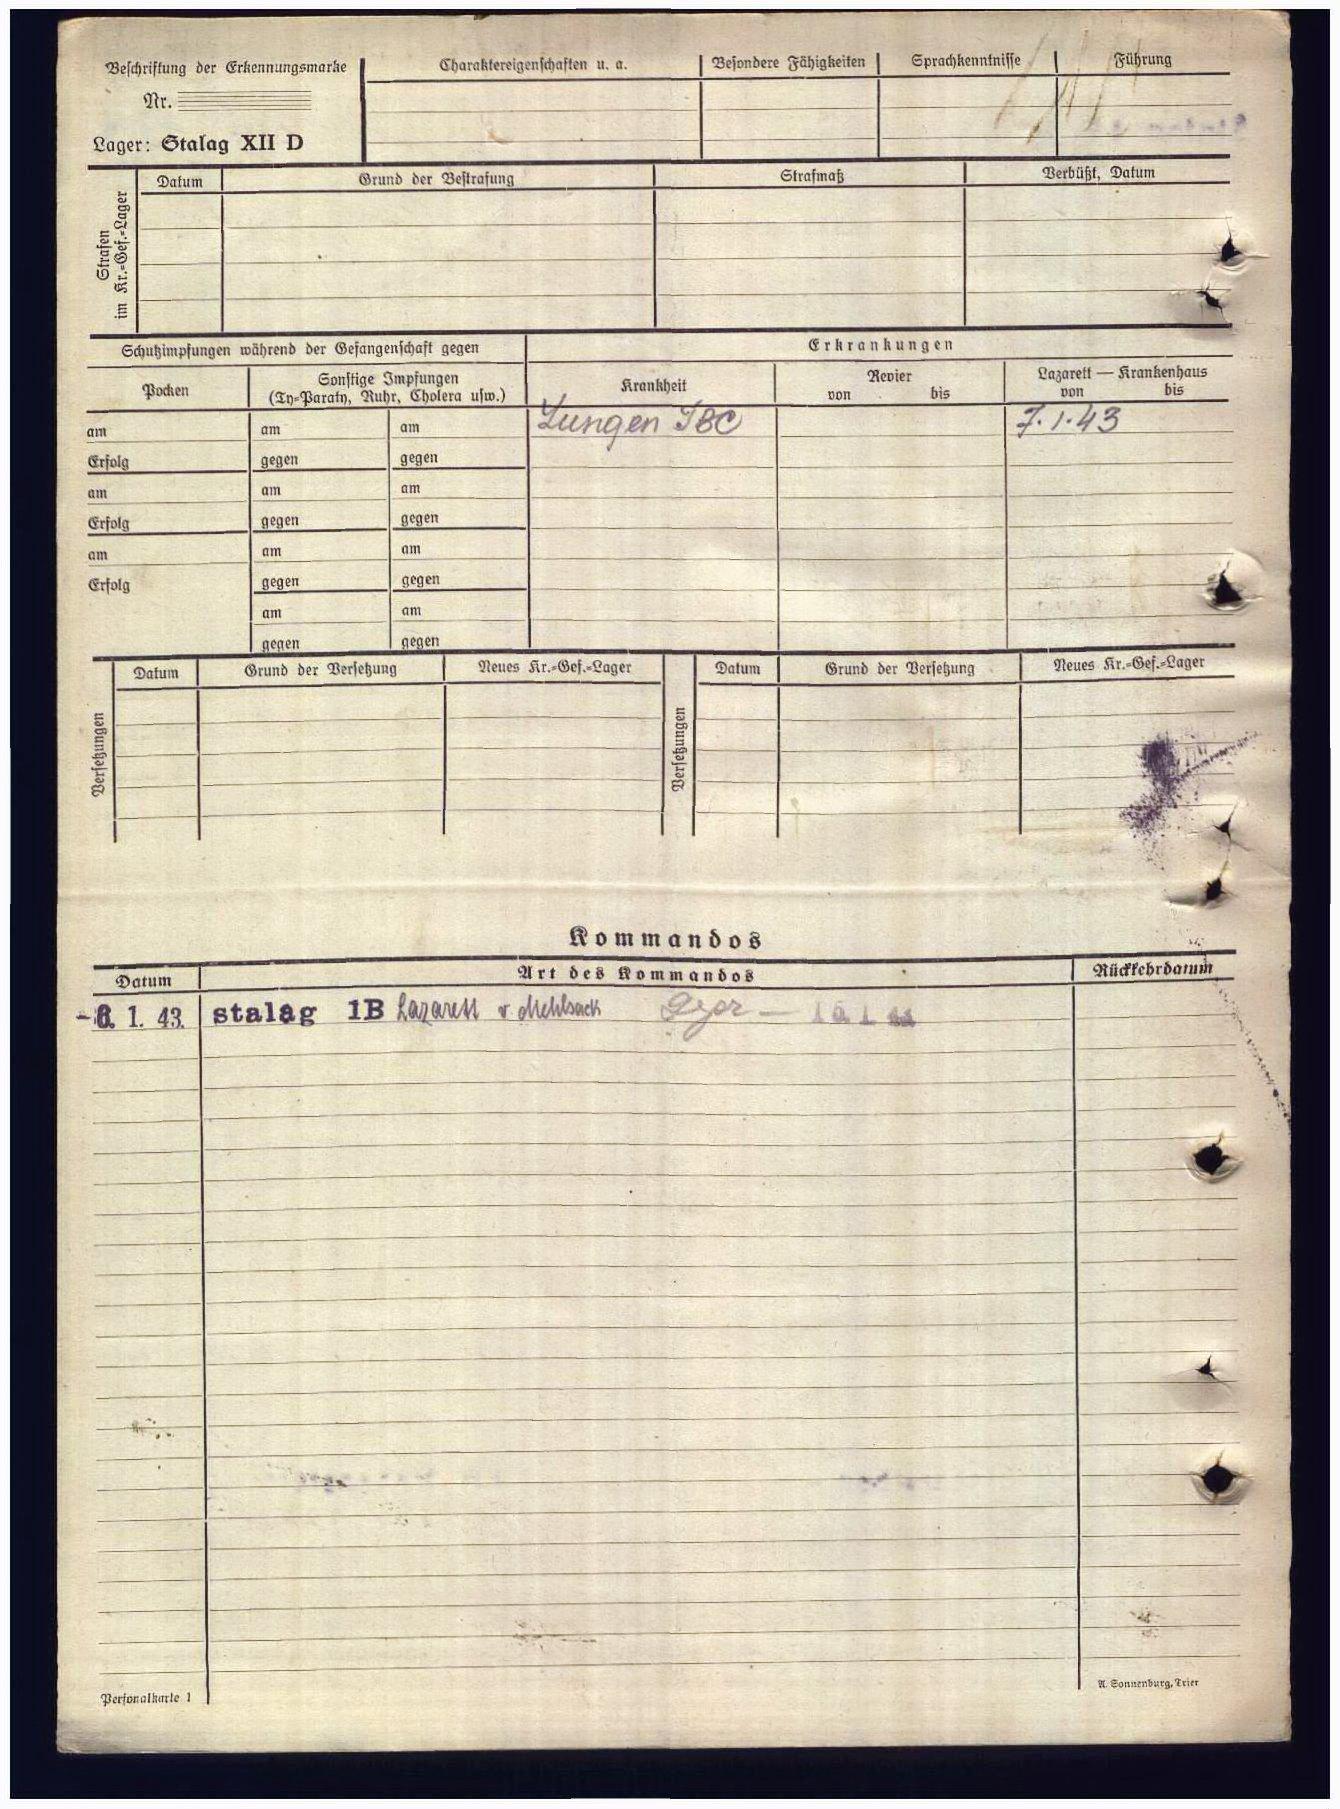 Beschriftung der Erkennungsmarke
Nr.
Lager: Stalag XII D
Charaktereigenschaften u. a.
Besondere Fähigkeiten
Sprachkenntnisse
Führung
Strafen
im Kr.=Gef.=Lager
Datum
Grund der Bestrafung
Strafmaß
Verbüßt, Datum
Schutzimpfungen während der Gefangenschaft gegen
Erkrankungen
Pocken
Sonstige Impfungen
(Ty=Paraty, Ruhr, Cholera usw.)
Krankheit
Revier
von bis
Lazarett — Krankenhaus
von bis
am am am Lungen TBC 7.1.43
Erfolg gegen gegen
am am am
Erfolg gegen gegen
am am am
Erfolg gegen gegen
am am
gegen gegen
Versetzungen
Datum
Grund der Versetzung
Neues Kr.=Gef.=Lager
Versetzungen
Datum
Grund der Versetzung
Neues Kr.=Gef.=Lager
Kommandos
Datum
Art des Kommandos
Rückkehrdatum
6. 1. 43. stalag 1B Lazarett v Mehlsack
Personalkarte 1
A. Sonnenburg, Trier